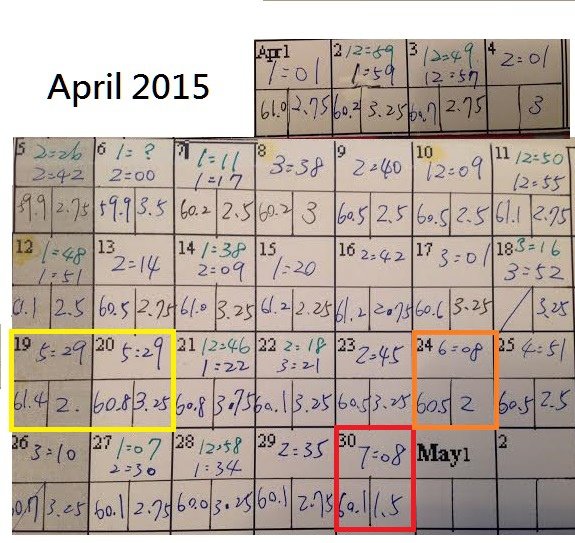 April 2015
Apr1 2 12=59 3 12=49 4 2=01
1=01 1=59 12=57
61.0 2.75 60.2 3.25 60.7 2.75 3
5 2=26 6 1=? 7 1=11 8 3=38 9 2=40 10 12=09 11 12=50
2=42 2=00 1=17 12=55
59.9 2.75 59.9 3.5 60.2 2.5 60.2 3 60.5 2.5 60.5 2.5 61.1 2.75
12 1=48 13 2=14 14 1=38 15 1=20 16 2=42 17 3=01 18 3=16
1=51 2=09 3=52
61.1 2.5 60.5 2.75 61.0 3.25 61.2 2.25 61.2 2.75 60.6 3.25 3.25
19 5=29 20 5=29 21 12=46 22 2=18 23 2=45 24 6=08 25 4=51
1=22 3=21
61.4 2. 60.8 3.25 60.8 3.75 60.1 3.25 60.5 3.25 60.5 2 60.5 2.5
26 3=10 27 1=07 28 12=58 29 2=35 30 7=08 May1 2
2=30 1=34
3.25 60.1 2.75 60.0 3.25 60.1 2.75 60.1 1.5